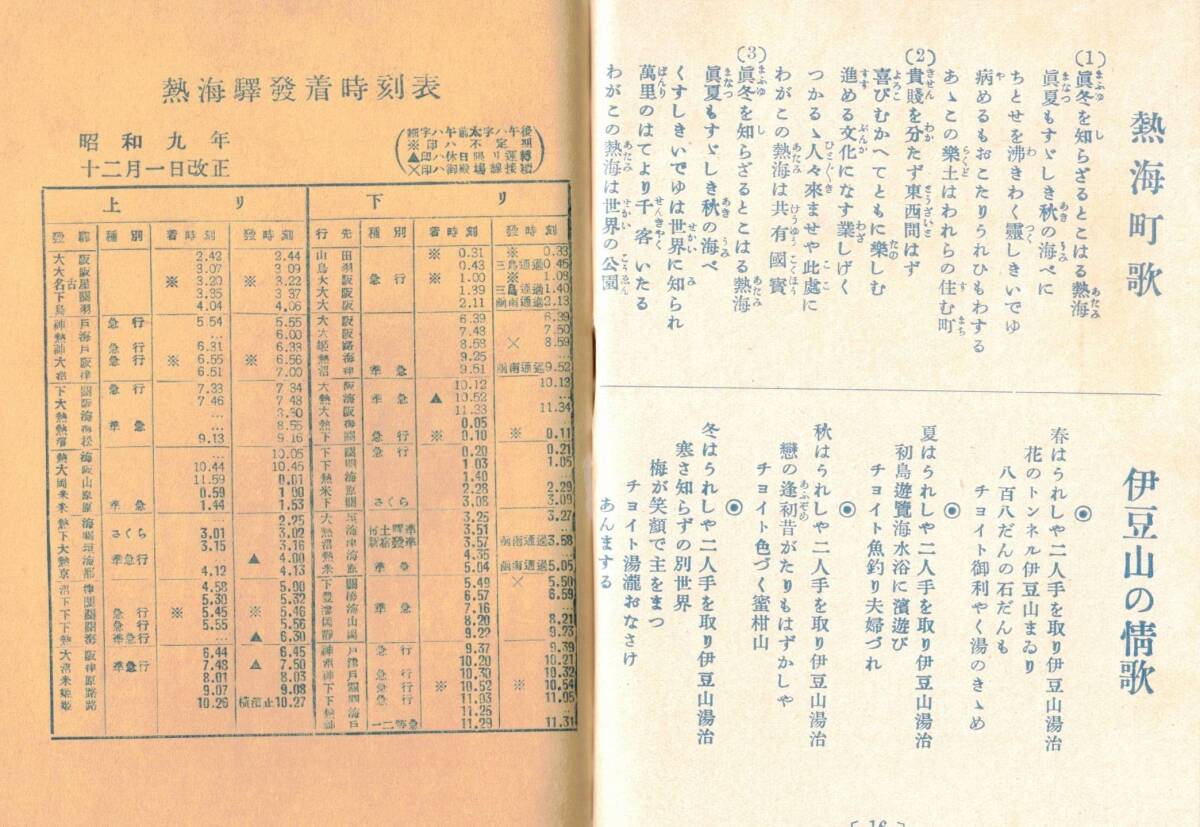 熱海町歌
(1)眞冬を知らざるとことはる熱海
眞夏もすゞしき秋の海べに
ちとせを沸きわく靈しきいでゆ
病めるもおこたりうれひもわする
あゝこの樂土はわれらの住む町
(2)貴賤を分たず東西問はず
喜びむかへてともに樂しむ
進める文化になす業しげく
つかるゝ人々來ませや此處に
わがこの熱海は共有國寳
(3)眞冬を知らざるとことはる熱海
眞夏もすゞしき秋の海べ
くすしきいでゆは世界に知られ
萬里のはてより千客いたる
わがこの熱海は世界の公園
伊豆山の情歌
◉
春はうれしや二人手を取り伊豆山湯治
花のトンネル伊豆山まゐり
八百八だんの石だんも
チョイト御利やく湯のきゝめ
◉
夏はうれしや二人手を取り伊豆山湯治
初島遊覽海水浴に濱遊び
チョイト魚釣り夫婦づれ
◉
秋はうれしや二人手を取り伊豆山湯治
戀の逢初昔がたりもはずかしや
チョイト色づく蜜柑山
◉
冬はうれしや二人手を取り伊豆山湯治
寒さ知らずの別世界
梅が笑顔で主をまつ
チョイト湯瀧おなさけ
あんまする
[ 16 ]
熱海驛發着時刻表
昭和九年
十二月一日改正
細字ハ午前太字ハ午後
※印ハ不定期
▲印ハ休日限リ運轉
×印ハ御殿場線接續
上リ 下リ
發驛 種別 着時刻 發時刻 行先 種別 着時刻 發時刻
大阪 2.42 2.44 山田 ※ 0.31 ※ 0.33
大阪 3.07 3.09 鳥羽 0.43 三島通過0.45
名古屋 ※ 3.20 ※ 3.22 大阪 急行 ※ 1.00 ※ 1.03
下關 3.35 3.37 大阪 1.39 三島通過1.40
鳥羽 4.04 4.06 大阪 2.11 函南通過2.13
神戸 急行 5.54 5.55 大阪 6.39 6.39
熱海 … 6.00 大阪 7.48 7.50
神戸 急行 6.31 6.33 姫路 8.58 × 8.59
大阪 急行 ※ 6.55 ※ 6.56 熱海 9.25 …
沼津 6.51 7.00 沼津 準急 9.51 函南通過9.52
下關 急行 7.33 7.34 大阪 10.12 10.13
大阪 7.46 7.48 熱海 準急 ▲ 10.52 …
熱海 … 8.30 大阪 11.33 11.34
熱海 準急 … 8.55 熱海 0.05 …
濱松 9.13 9.16 下關 急行 ※ 0.10 ※ 0.11
熱海 … 10.05 下關 急行 0.20 0.21
大阪 10.44 10.45 下關 1.03 1.05
岡山 11.59 0.01 熱海 1.40 …
米原 0.59 1.00 米原 2.28 2.29
米原 準急 1.44 1.53 下關 さくら 3.08 3.09
熱海 … 2.25 大垣 3.25 3.27
下關 さくら 3.01 3.02 熱海 3.51 …
大垣 3.15 3.16 沼津 3.57 函南通過3.58
熱海 準急行 … ▲ 4.00 熱海 4.35 …
京都 4.12 4.13 米原 準急 5.04 函南通過5.05
沼津 4.58 5.00 下關 5.49 × 5.50
下關 5.30 5.32 豊橋 6.57 6.59
下關 急行 ※ 5.45 ※ 5.46 熱海 準急 7.16 …
下關 急行 5.55 5.56 岡山 8.20 8.21
熱海 準急行 … ▲ 6.30 靜岡 9.22 9.23
大阪 6.44 6.45 神戸 9.37 9.39
沼津 準急行 7.48 ▲ 7.50 沼津 10.20 10.21
米原 8.01 8.03 神戸 急行 10.30 10.32
姫路 9.07 9.08 下關 急行 ※ 10.52 ※ 10.54
姫路 10.26 横濱止10.27 下關 急行 11.03 11.05
熱海 11.25 …
神戸 一二等急 11.29 11.31